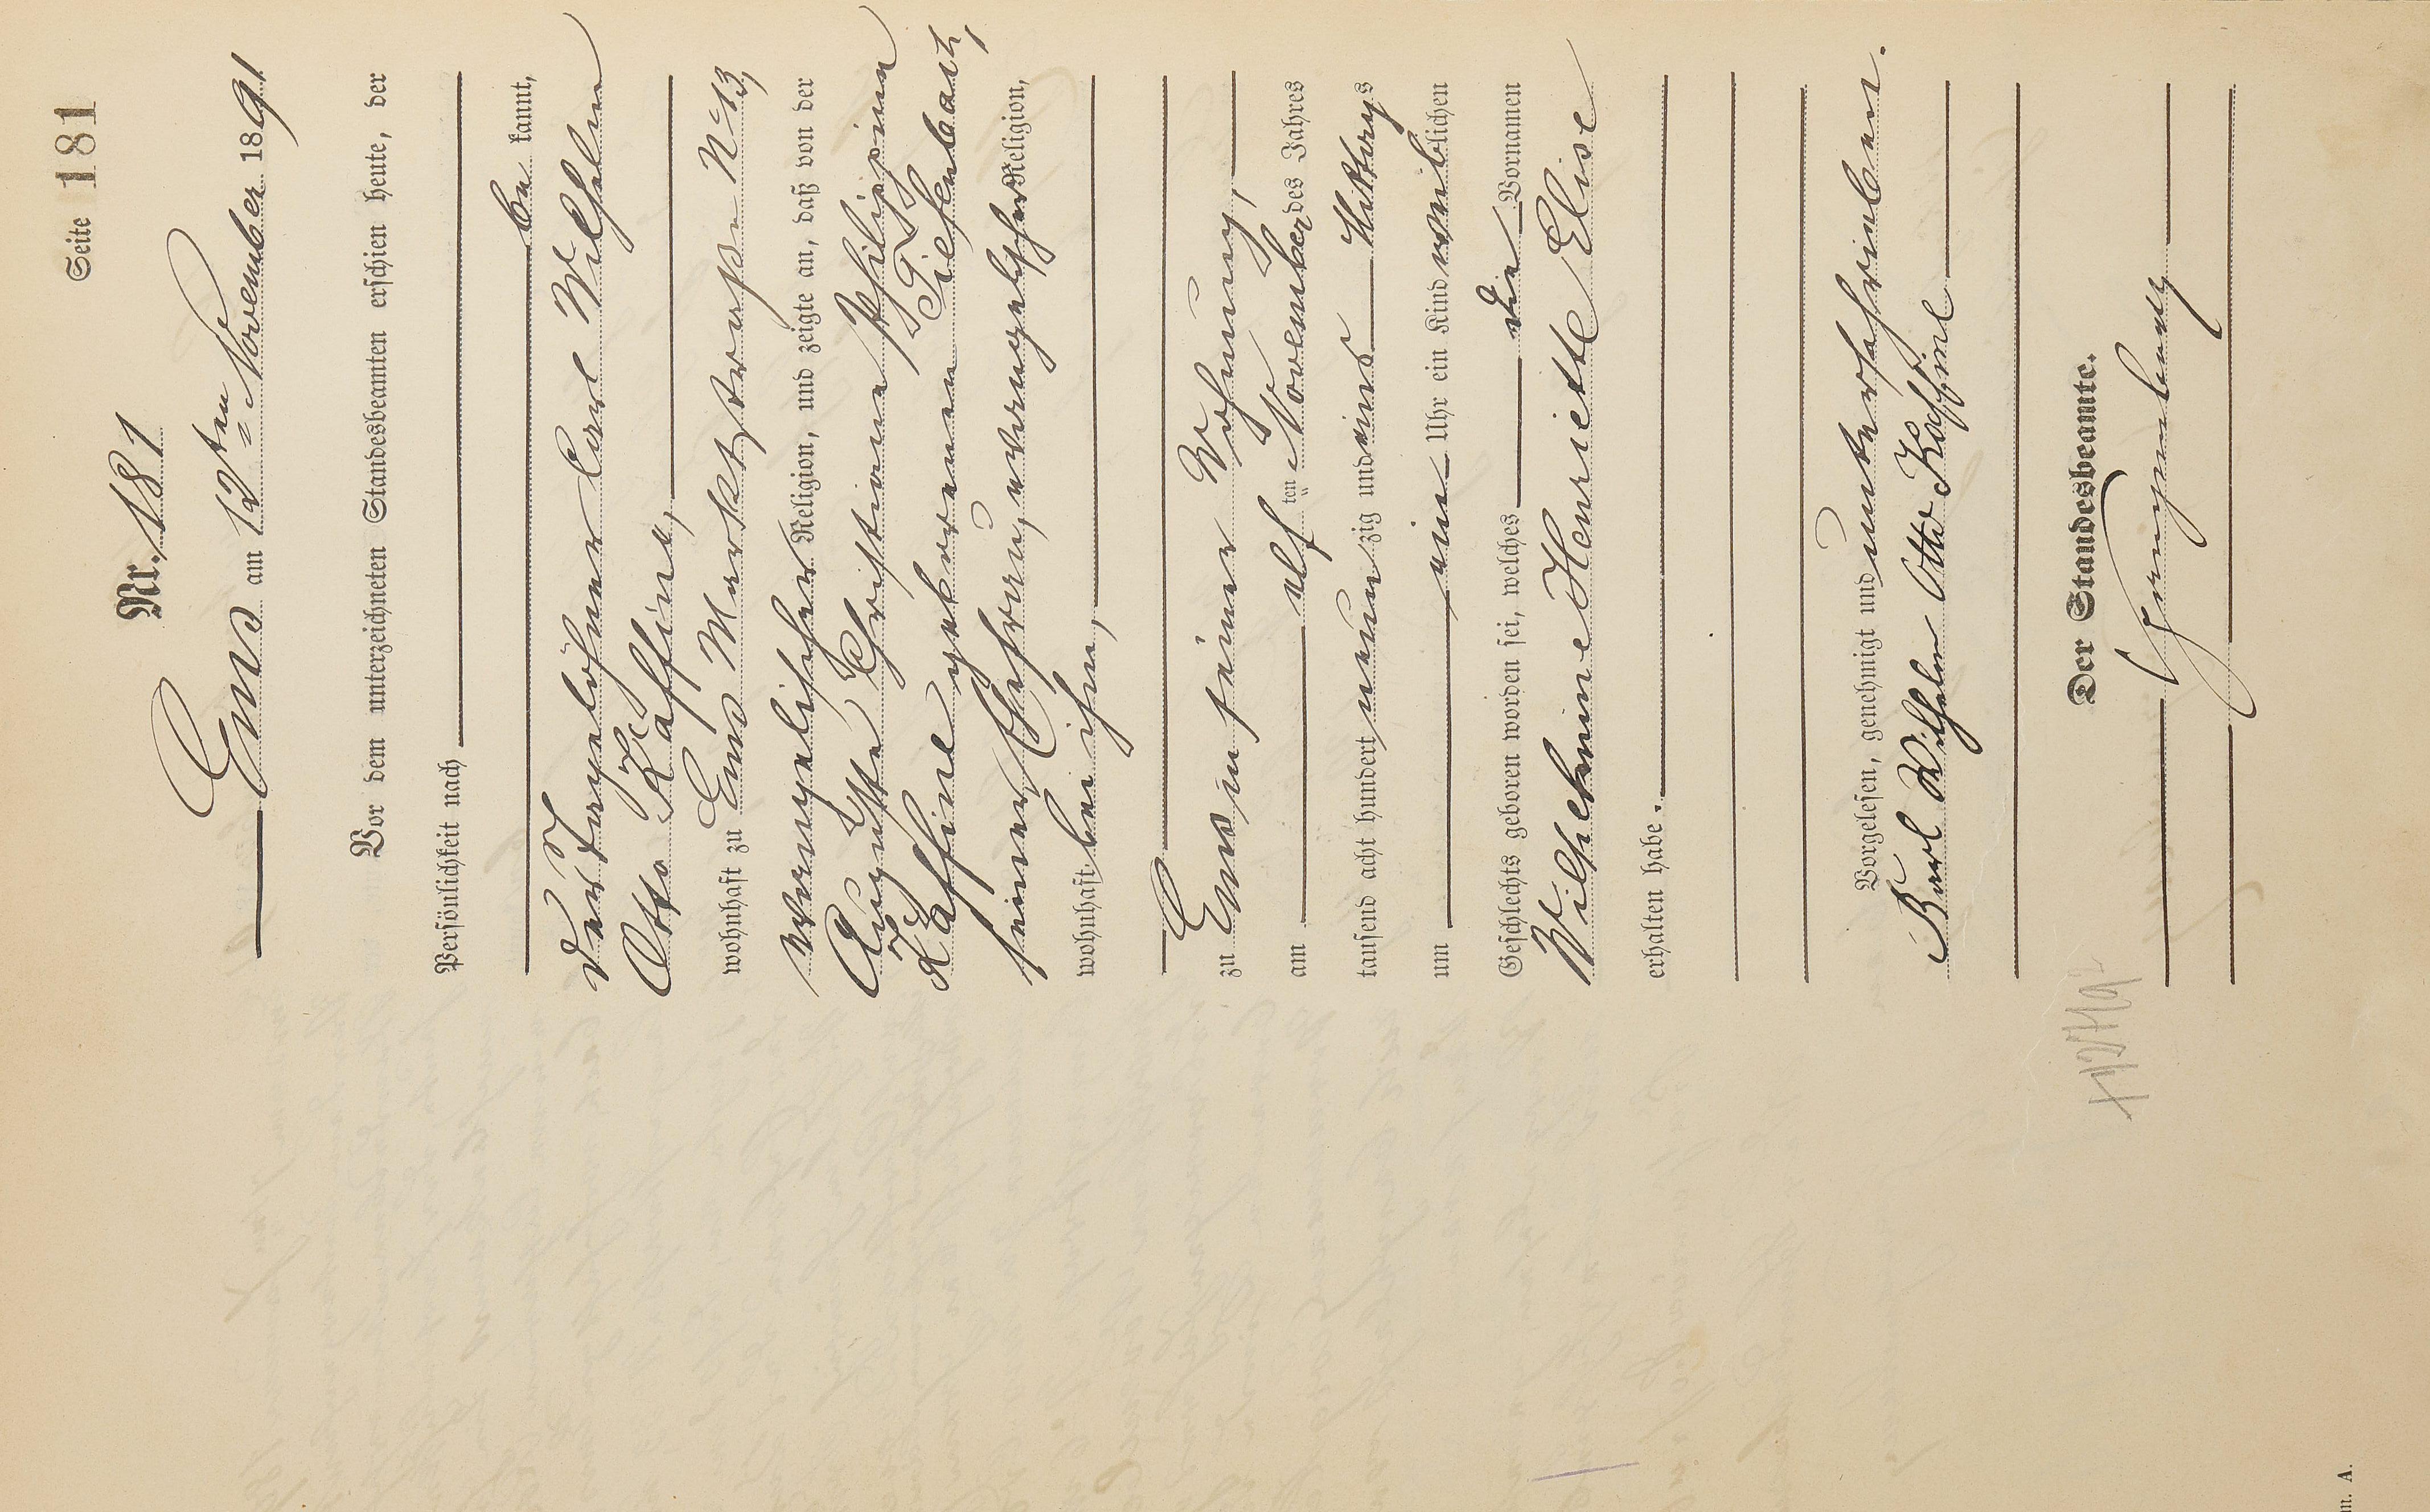 Seite 181
Nr. 181
Ems am 12ten November 1891
Vor dem unterzeichneten Standesbeamten erschien heute, der
Persönlichkeit nach
be kannt,
der Tagelöhner Carl Wilhelm
Otto Käffine,
wohnhaft zu Ems Marktstraße No 13,
evangelischer Religion, und zeigte an, daß von der
Auguste Christiane Philippine
Käffine geborenen Tiefenbach,
seiner Ehefrau, evangelischer Religion,
wohnhaft bei ihm,
zu Ems in seiner Wohnung,
am elf ten November des Jahres
tausend acht hundert neun zig und eins Mittags
um ein Uhr ein Kind weiblichen
Geschlechts geboren worden sei, welches die Vornamen
Wilhelmine Henriette Elise
erhalten habe.
Vorgelesen, genehmigt und unterschrieben.
Karl Wilhelm Otto
Der Standesbeamte.
m. A.